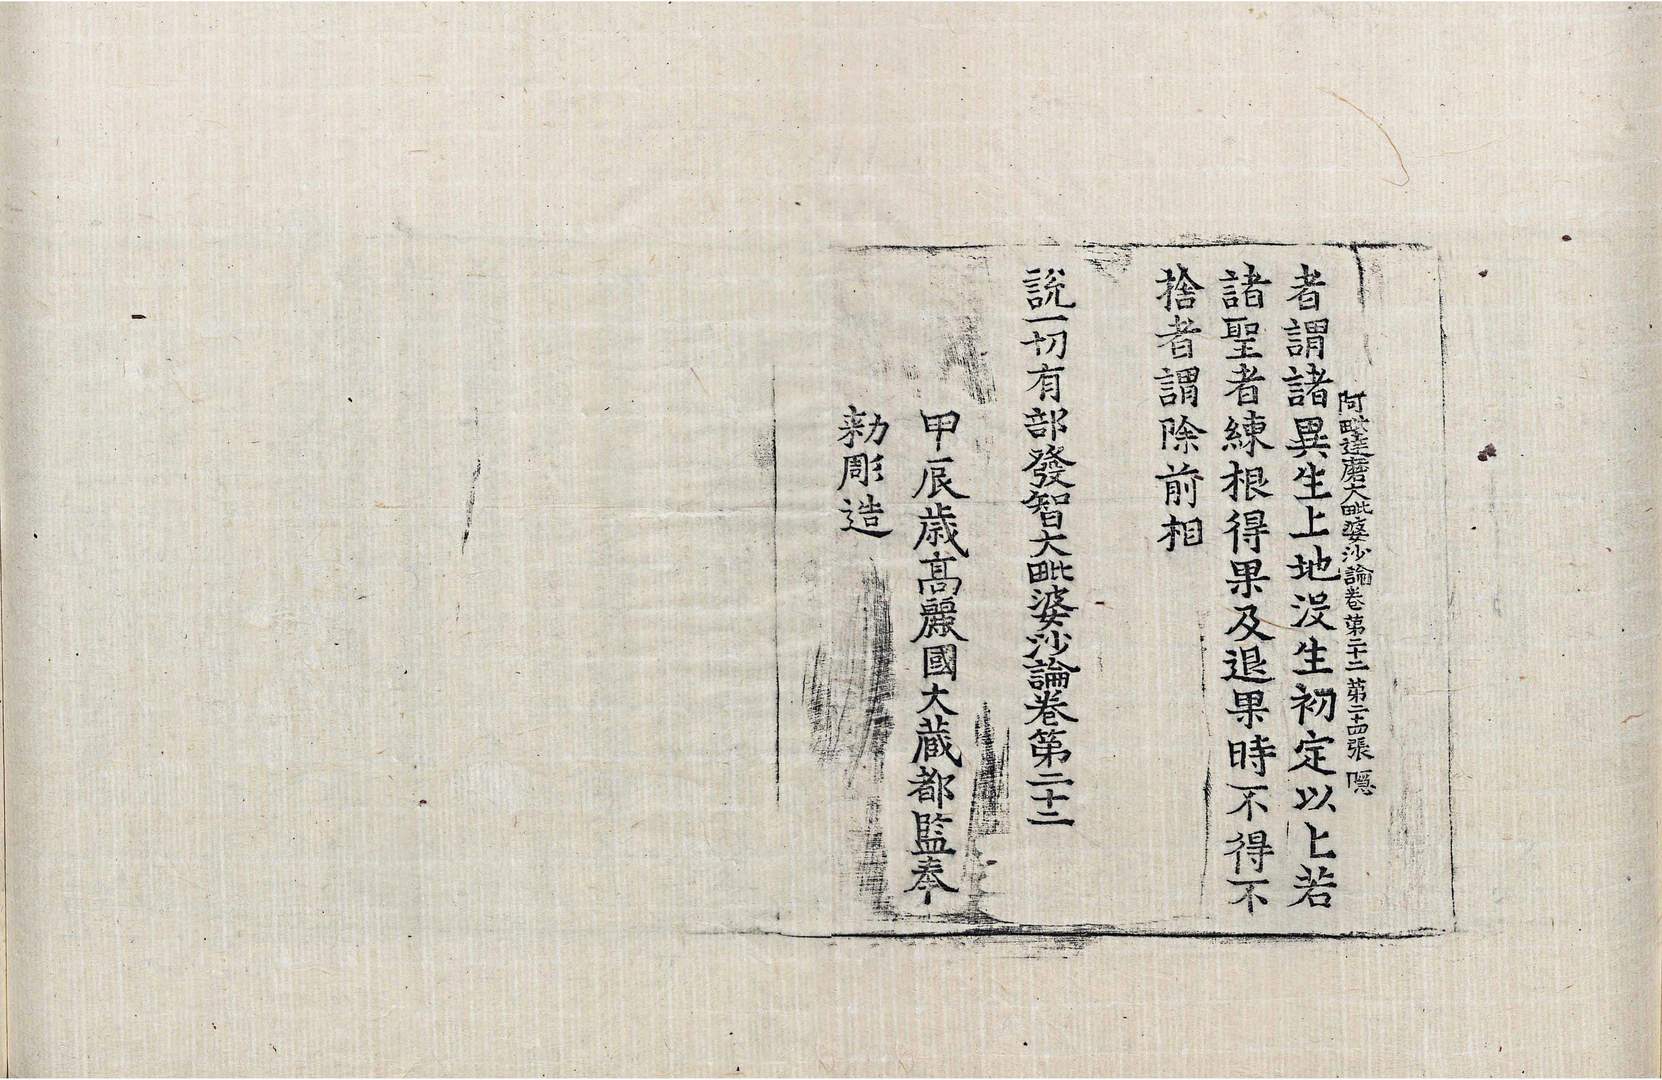 阿毗達磨大毗婆沙論卷第二十二 第二十四張 隱
者謂諸異生上地没生初定以上若
諸聖者練根得果及退果時不得不
捨者謂除前相
說一切有部發智大毗婆沙論卷第二十二
甲辰歲高麗國大藏都監奉
勑彫造